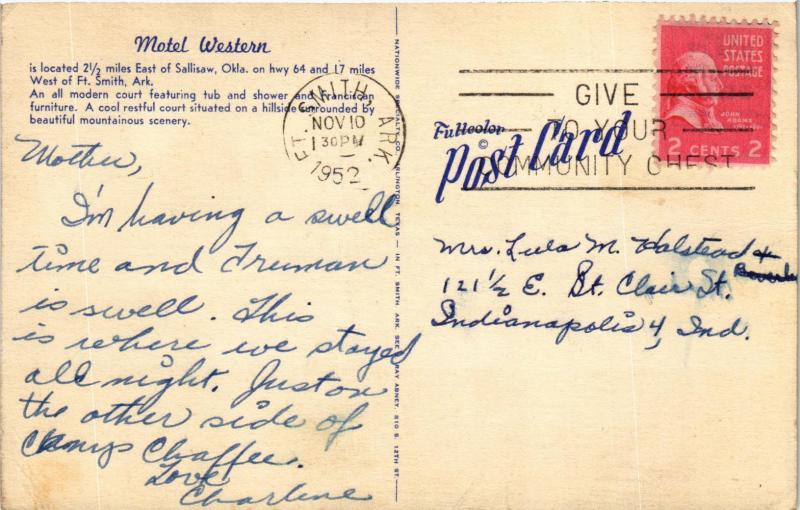 Motel Western
is located 2½ miles East of Sallisaw, Okla. on hwy 64 and 17 miles
West of Ft. Smith, Ark.
An all modern court featuring tub and shower and Franciscan
furniture. A cool restful court situated on a hillside surrounded by
beautiful mountainous scenery.
Mother,
I'm having a swell
time and Truman
is swell. This
is where we stayed
all night. Just on
the other side of
Camp Chaffee.
Love
Charline
FT. SMITH, ARK.
NOV 10
1 30 PM
1952
GIVE
TO YOUR
COMMUNITY CHEST
UNITED
STATES
POSTAGE
JOHN
ADAMS
2 CENTS 2
Fullcolor
©
Post Card
Mrs. Lula M. Halstead +
Beverly
121½ E. St. Clair St.
Indianapolis 4, Ind.
NATIONWIDE SPECIALTY CO. ARLINGTON, TEXAS — IN FT. SMITH ARK. SEE RAY ABNEY, 810 S. 12TH ST.